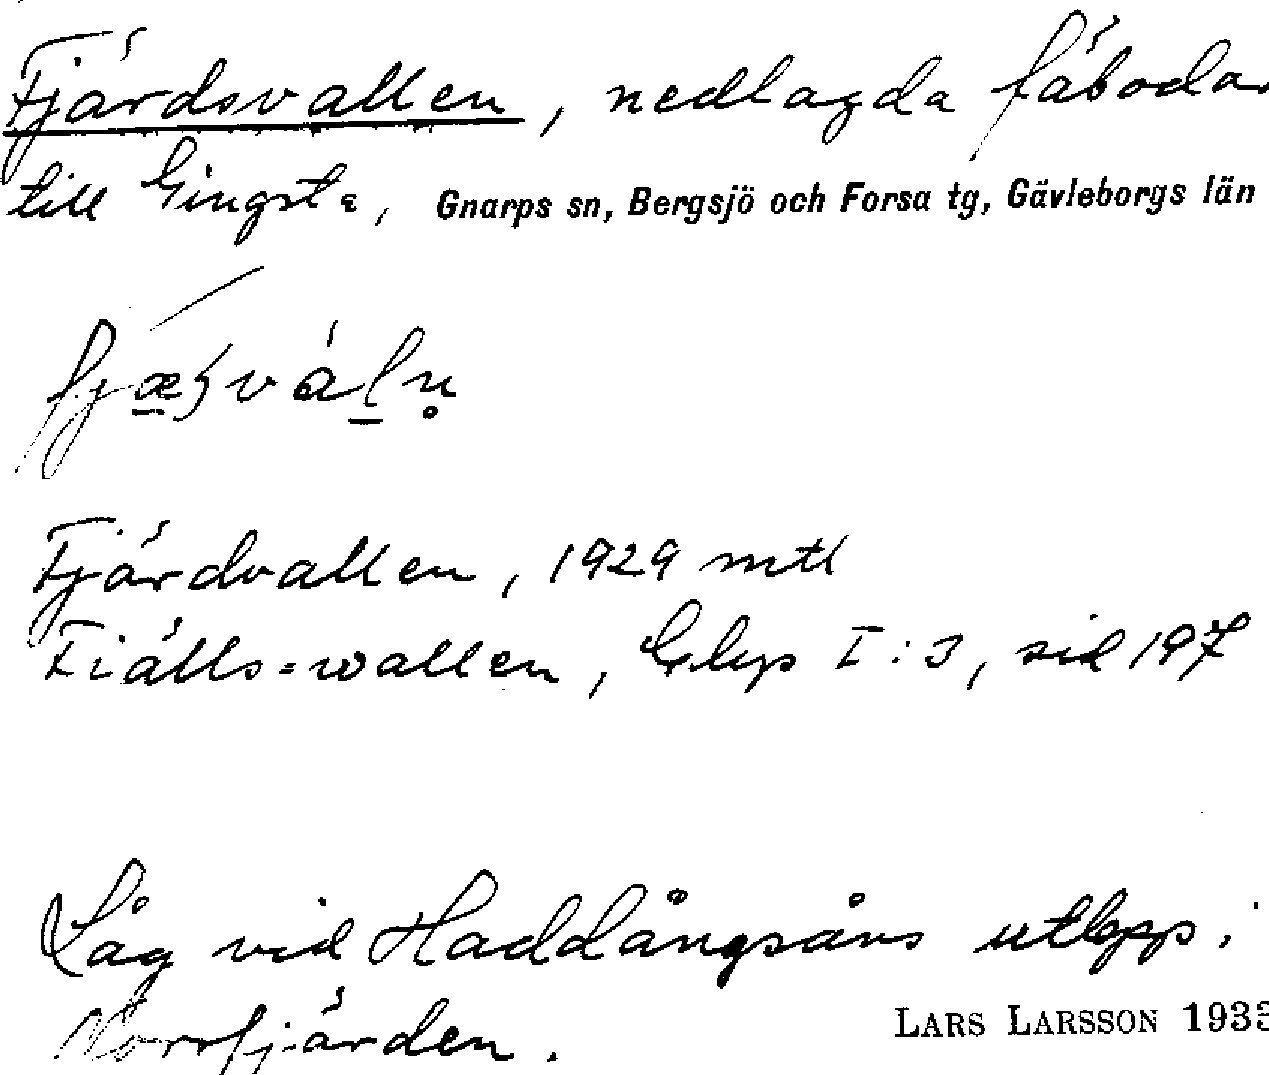 Fjärdsvallen, nedlagda fäbodar
till Gingsta, Gnarps sn, Bergsjö och Forsa tg, Gävleborgs län
Fjärdvallen, 1929 mtl
Fiälls-wallen, I:3, sid 197
Låg vid Haddångsåns utlopp i
Norrfjärden.
LARS LARSSON 1935